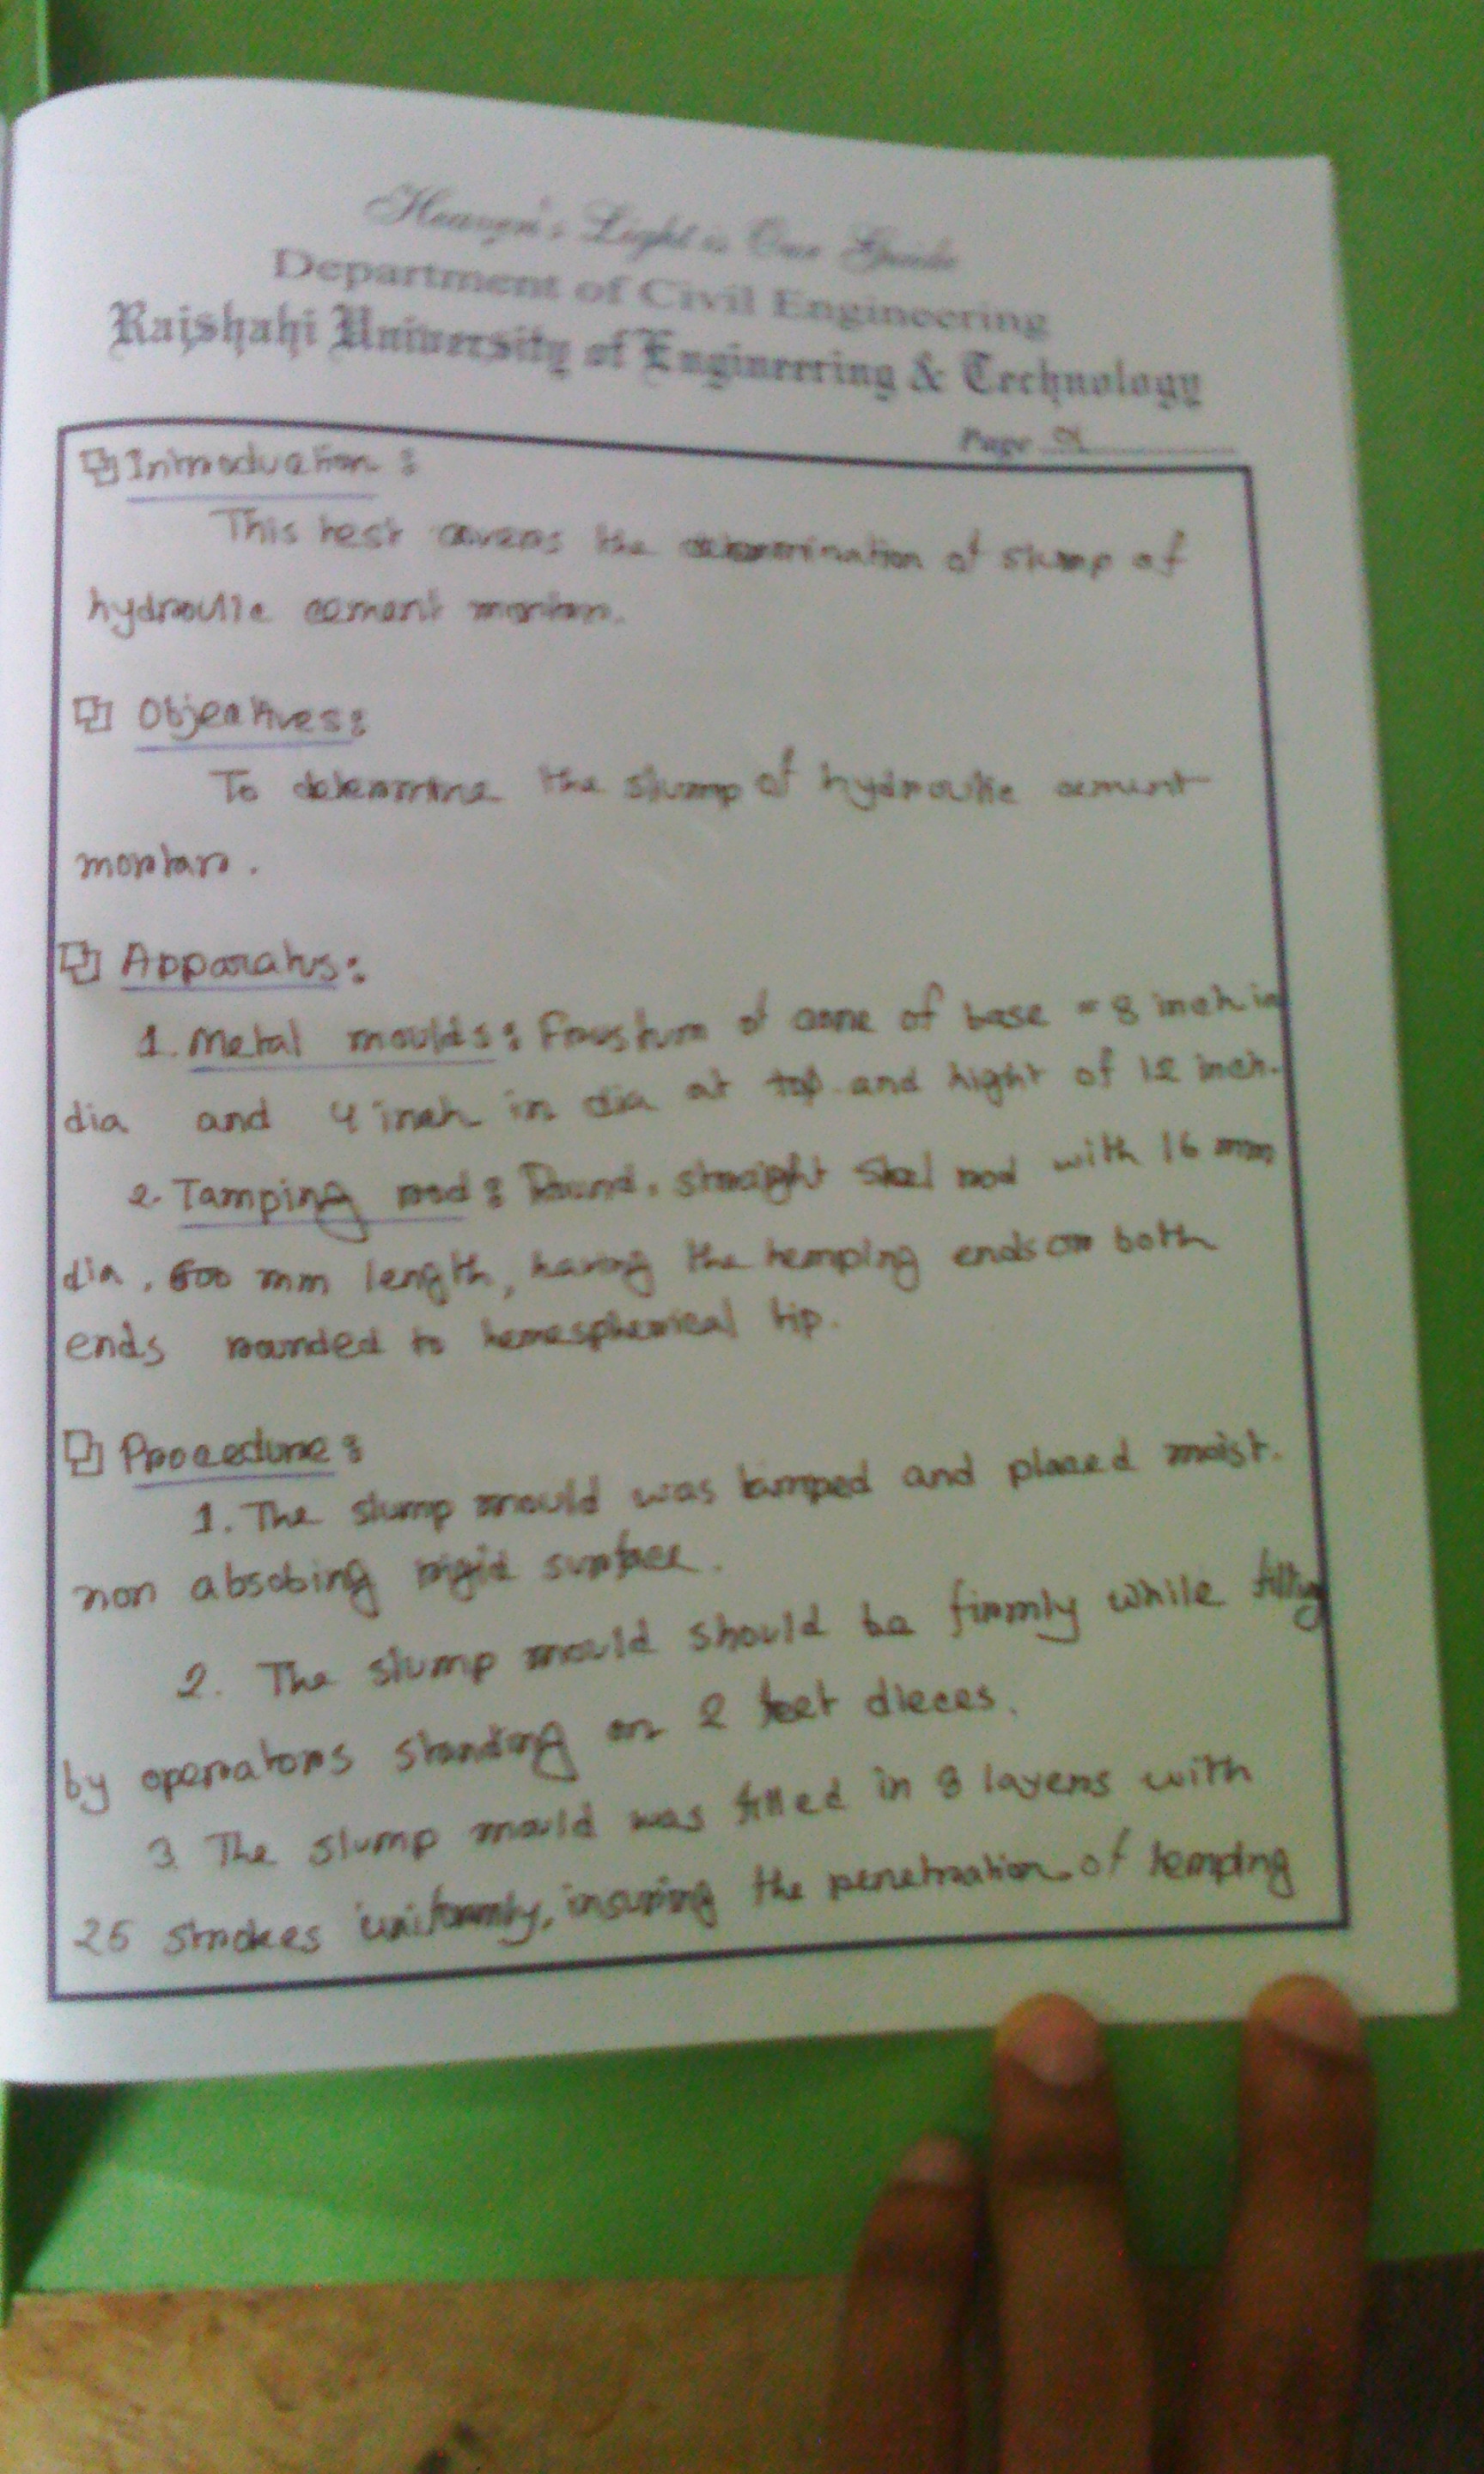 Heaven's Light is Our Guide
Department of Civil Engineering
Rajshahi University of Engineering & Technology
Page
Introduction :
This test covers the determination of slump of
hydraulic cement mortar.
Objectives:
To determine the slump of hydraulic cement
mortar.
Apparatus:
1. Metal moulds: Frustum of cone of base = 8 inch in
dia and 4 inch in dia at top and hight of 12 inch.
2. Tamping rod: Round, straight steel rod with 16 mm
dia, 600 mm length, having the temping ends on both
ends rounded to hemespherical tip.
Procedure:
1. The slump mould was tamped and placed moist.
non absobing rigid surface.
2. The slump mould should be firmly while filling
by operators standing on 2 feet dieces.
3. The slump mould was filled in 3 layers with
25 strokes uniformly, insuring the penetration of temping